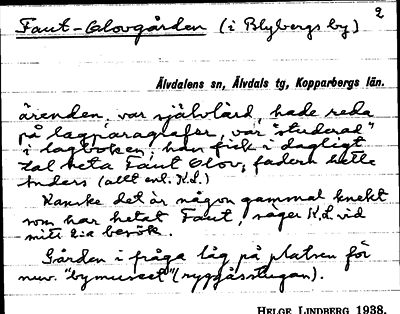 2
Faut-Olovgården (i Blybergs by)
Älvdalens sn, Älvdals tg, Kopparbergs län.
ärenden, var självlärd, hade reda
på lagparagrafer, var "studerad"
i lagboken; han fick i dagligt
tal heta Faut Olov, fadern hette
Anders (allt enl. K.L.)
Kanske det är någon gammal knekt
som har hetat Faut, säger K.L. vid
mitt 2:a besök.
Gården i fråga låg på platsen för
nuv. "bymuseet" (ryggåsstugan).
HELGE LINDBERG 1938.